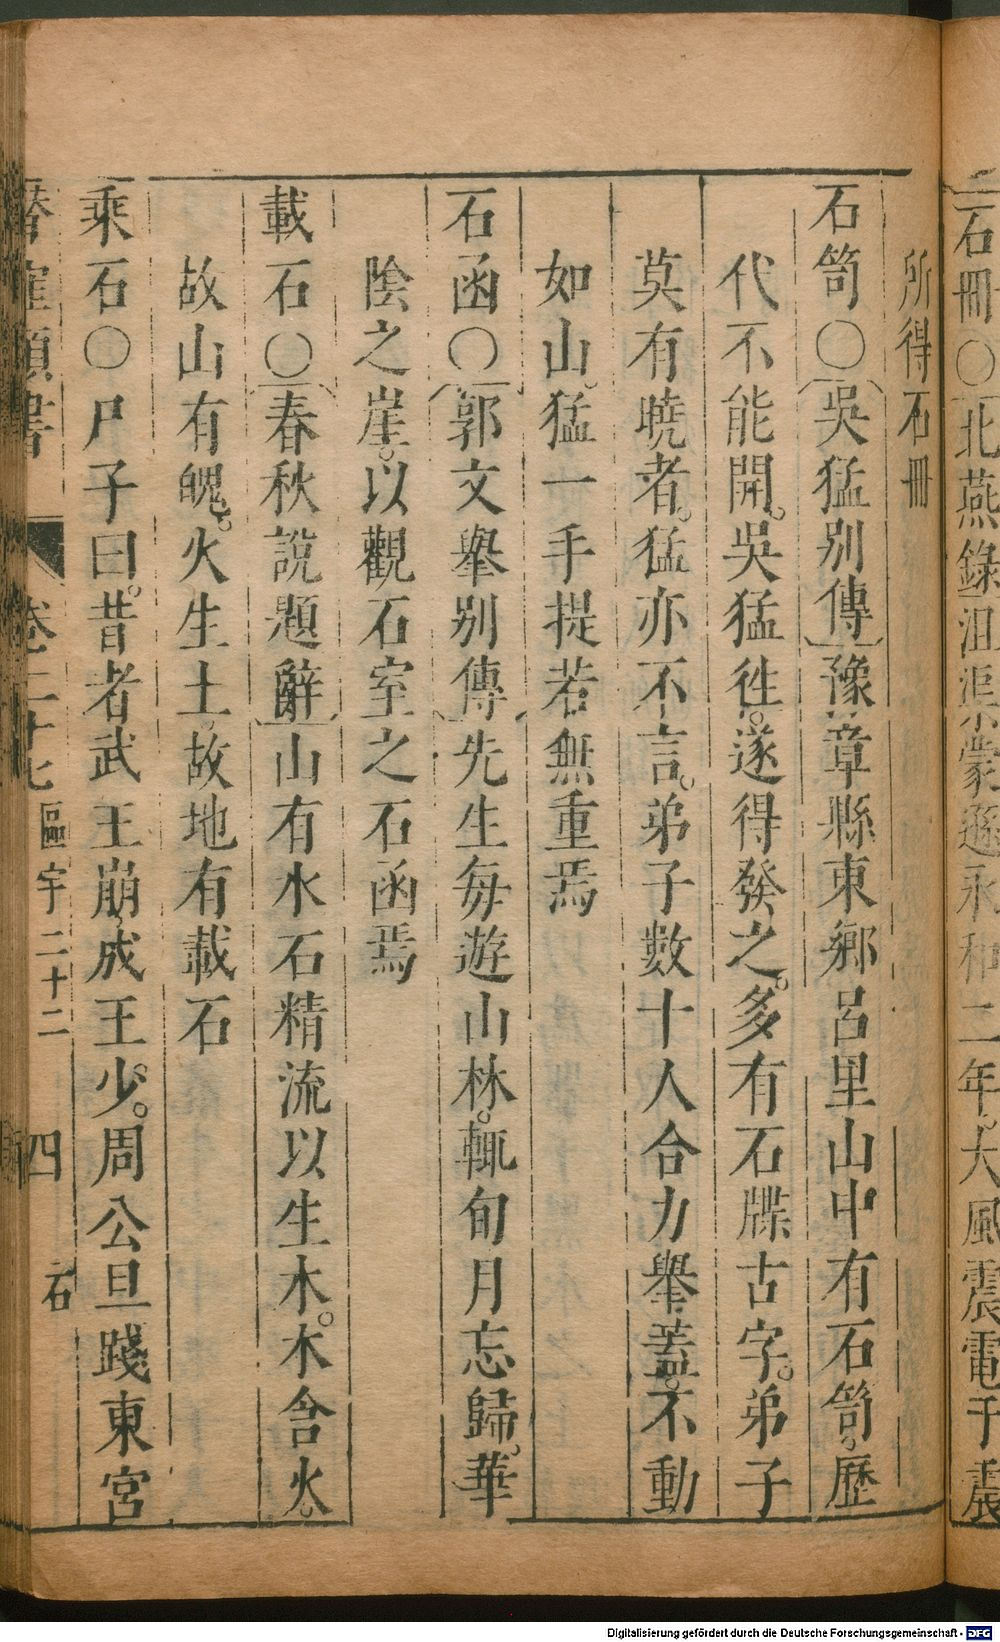 石冊○北燕錄沮渠蒙遜永和二年大風震電于震
所得石冊
石笥○吳猛別傳豫章縣東鄉呂里山中有石笥歷
代不能開吳猛徃遂得發之多有石牒古字弟子
莫有曉者猛亦不言弟子數十人合力舉蓋不動
如山猛一手提若無重焉
石函○郭文舉別傳先生每遊山林輒旬月忘歸華
陰之崖以觀石室之石函焉
載石○春秋說題辭山有水石精流以生木木含火
故山有魄火生土故地有載石
乘石○尸子曰昔者武王崩成王少周公旦踐東宮
卷二十七 區宇二十二 四 石
Digitalisierung gefördert durch die Deutsche Forschungsgemeinschaft - DFG